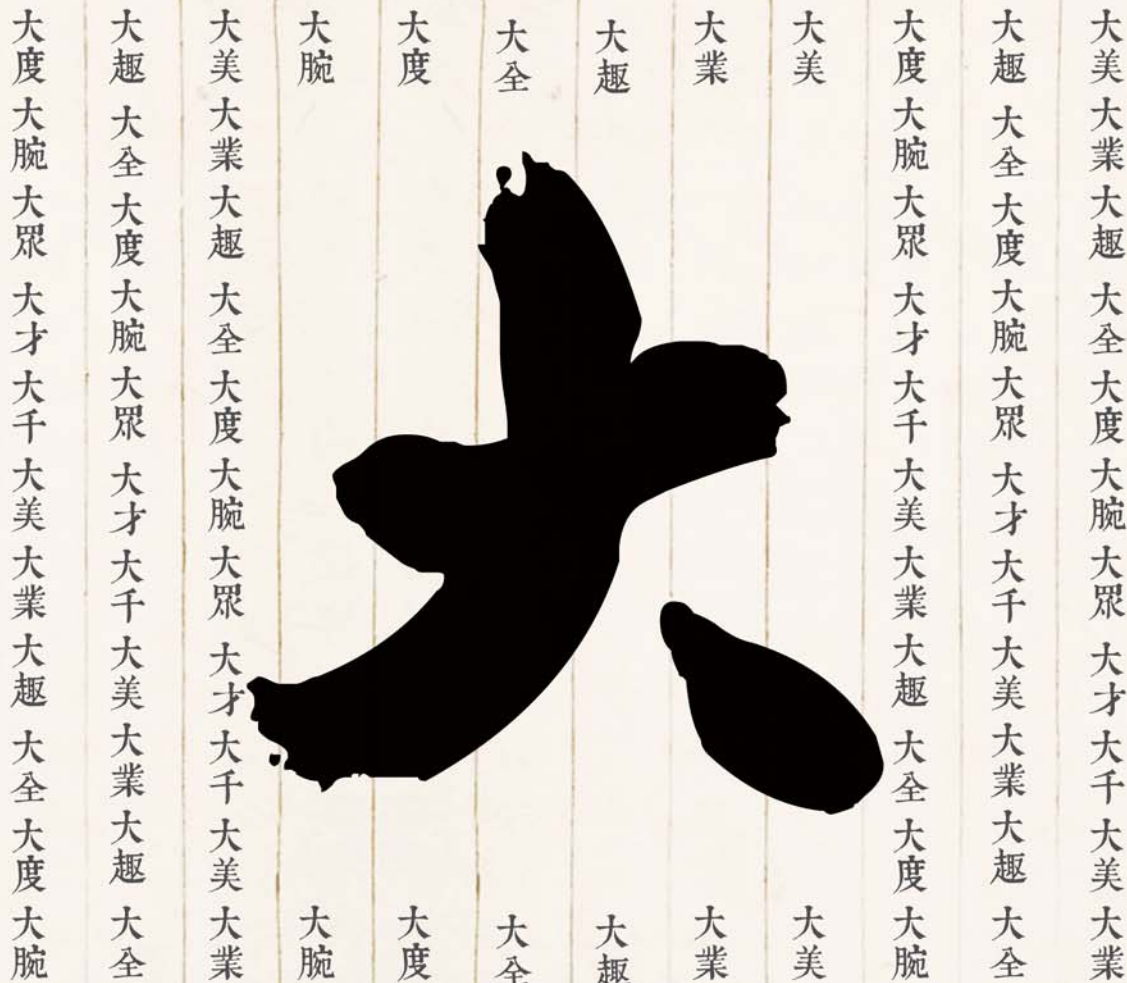 大美大業大趣大全大度大腕大眾大才大千大美大業
大趣大全大度大腕大眾大才大千大美大業大趣大全
大度大腕大眾大才大千大美大業大趣大全大度大腕
大美
大業
大趣
大全
大度
大腕
大
大美
大業
大趣
大全
大度
大腕
大美大業大趣大全大度大腕大眾大才大千大美大業
大趣大全大度大腕大眾大才大千大美大業大趣大全
大度大腕大眾大才大千大美大業大趣大全大度大腕